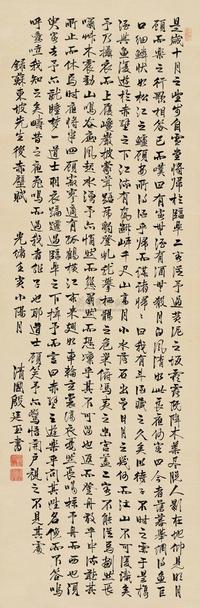 是歲十月之望步自雪堂將歸於臨皋二客從予過黃泥之坂霜露既降木葉盡脫人影在地仰見明月
顧而樂之行歌相答已而嘆曰有客無酒有酒無肴月白風清如此良夜何客曰今者薄暮舉網得魚巨
口細鱗狀如松江之鱸顧安所得酒乎歸而謀諸婦婦曰我有斗酒藏之久矣以待子不時之需於是攜
酒與魚復遊於赤壁之下江流有聲斷岸千尺山高月小水落石出曾日月之幾何而江山不可復識矣
予乃攝衣而上履巉巖披蒙茸踞虎豹登虬龍攀栖鶻之危巢俯馮夷之幽宮蓋二客不能從焉劃然長
嘯草木震動山鳴谷應風起水涌予亦悄然而悲肅然而恐凜乎其不可留也返而登舟放乎中流聽其
所止而休焉時夜將半四顧寂寥適有孤鶴橫江東來翅如車輪玄裳縞衣戛然長鳴掠予舟而西也須
臾客去予亦就睡夢一道士羽衣蹁躚過臨皋之下揖予而言曰赤壁之遊樂乎問其姓名俛而不答嗚
呼噫嘻我知之矣疇昔之夜飛鳴而過我者非子也耶道士顧笑予亦驚悟開戶視之不見其處
錄蘇東坡先生後赤壁賦
光緒壬寅小陽月
清國殷廷玉書